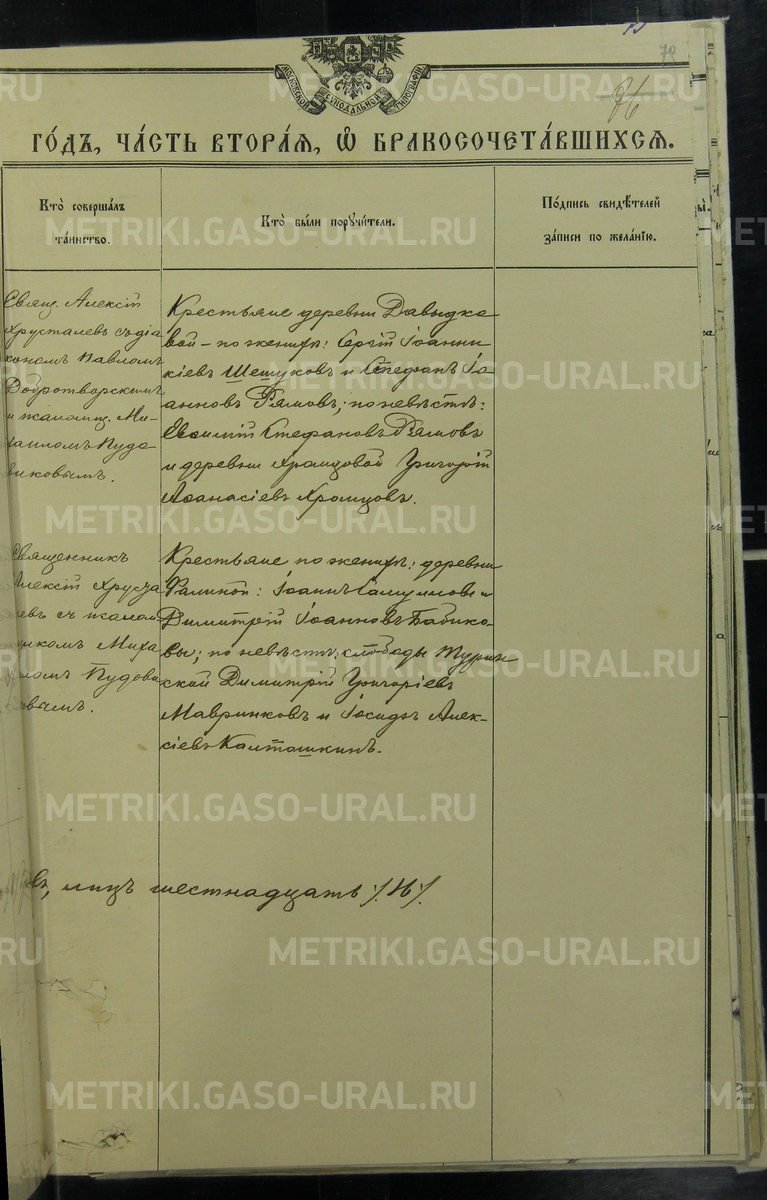 78
МОСКОВСКОЙ СѴНОДАЛЬНОЙ ТИПОГРАФІИ
ГОДЪ, ЧАСТЬ ВТОРАЯ, Ѡ БРАКОСОЧЕТАВШИХСЯ.
Кто совершалъ
таинство.
Кто были поручители.
Подпись свидѣтелей
записи по желанію.
Свящ. Алексій
Хрусталевъ съ діа
кономъ Павломъ
Добротворскимъ
и псаломщ. Ми-
хаиломъ Пудо
виковымъ.
Крестьяне деревни Давыдко
вой - по женихѣ: Сергій Іоанни
кіевъ Шешуковъ и Стефанъ Іо
анновъ Рямовъ; по невѣстѣ:
Евсимій Стефановъ Рямовъ
и деревни Храмцовой Григорій
Аѳанасіевъ Храмцовъ.
Священникъ
Алексій Хруста
левъ съ псалом
щикомъ Миха
иломъ Пудови
ковымъ.
Крестьяне по женихѣ: деревни
Фалиной: Іоаннъ Самуиловъ и
Димитрій Іоанновъ Бабико
вы; по невѣстѣ: слободы Турин
ской Димитрій Григоріевъ
Мавринковъ и Іосифъ Алек-
сіевъ Калташкинъ.
въ, лицъ шестнадцать /16/.
METRIKI.GASO-URAL.RU